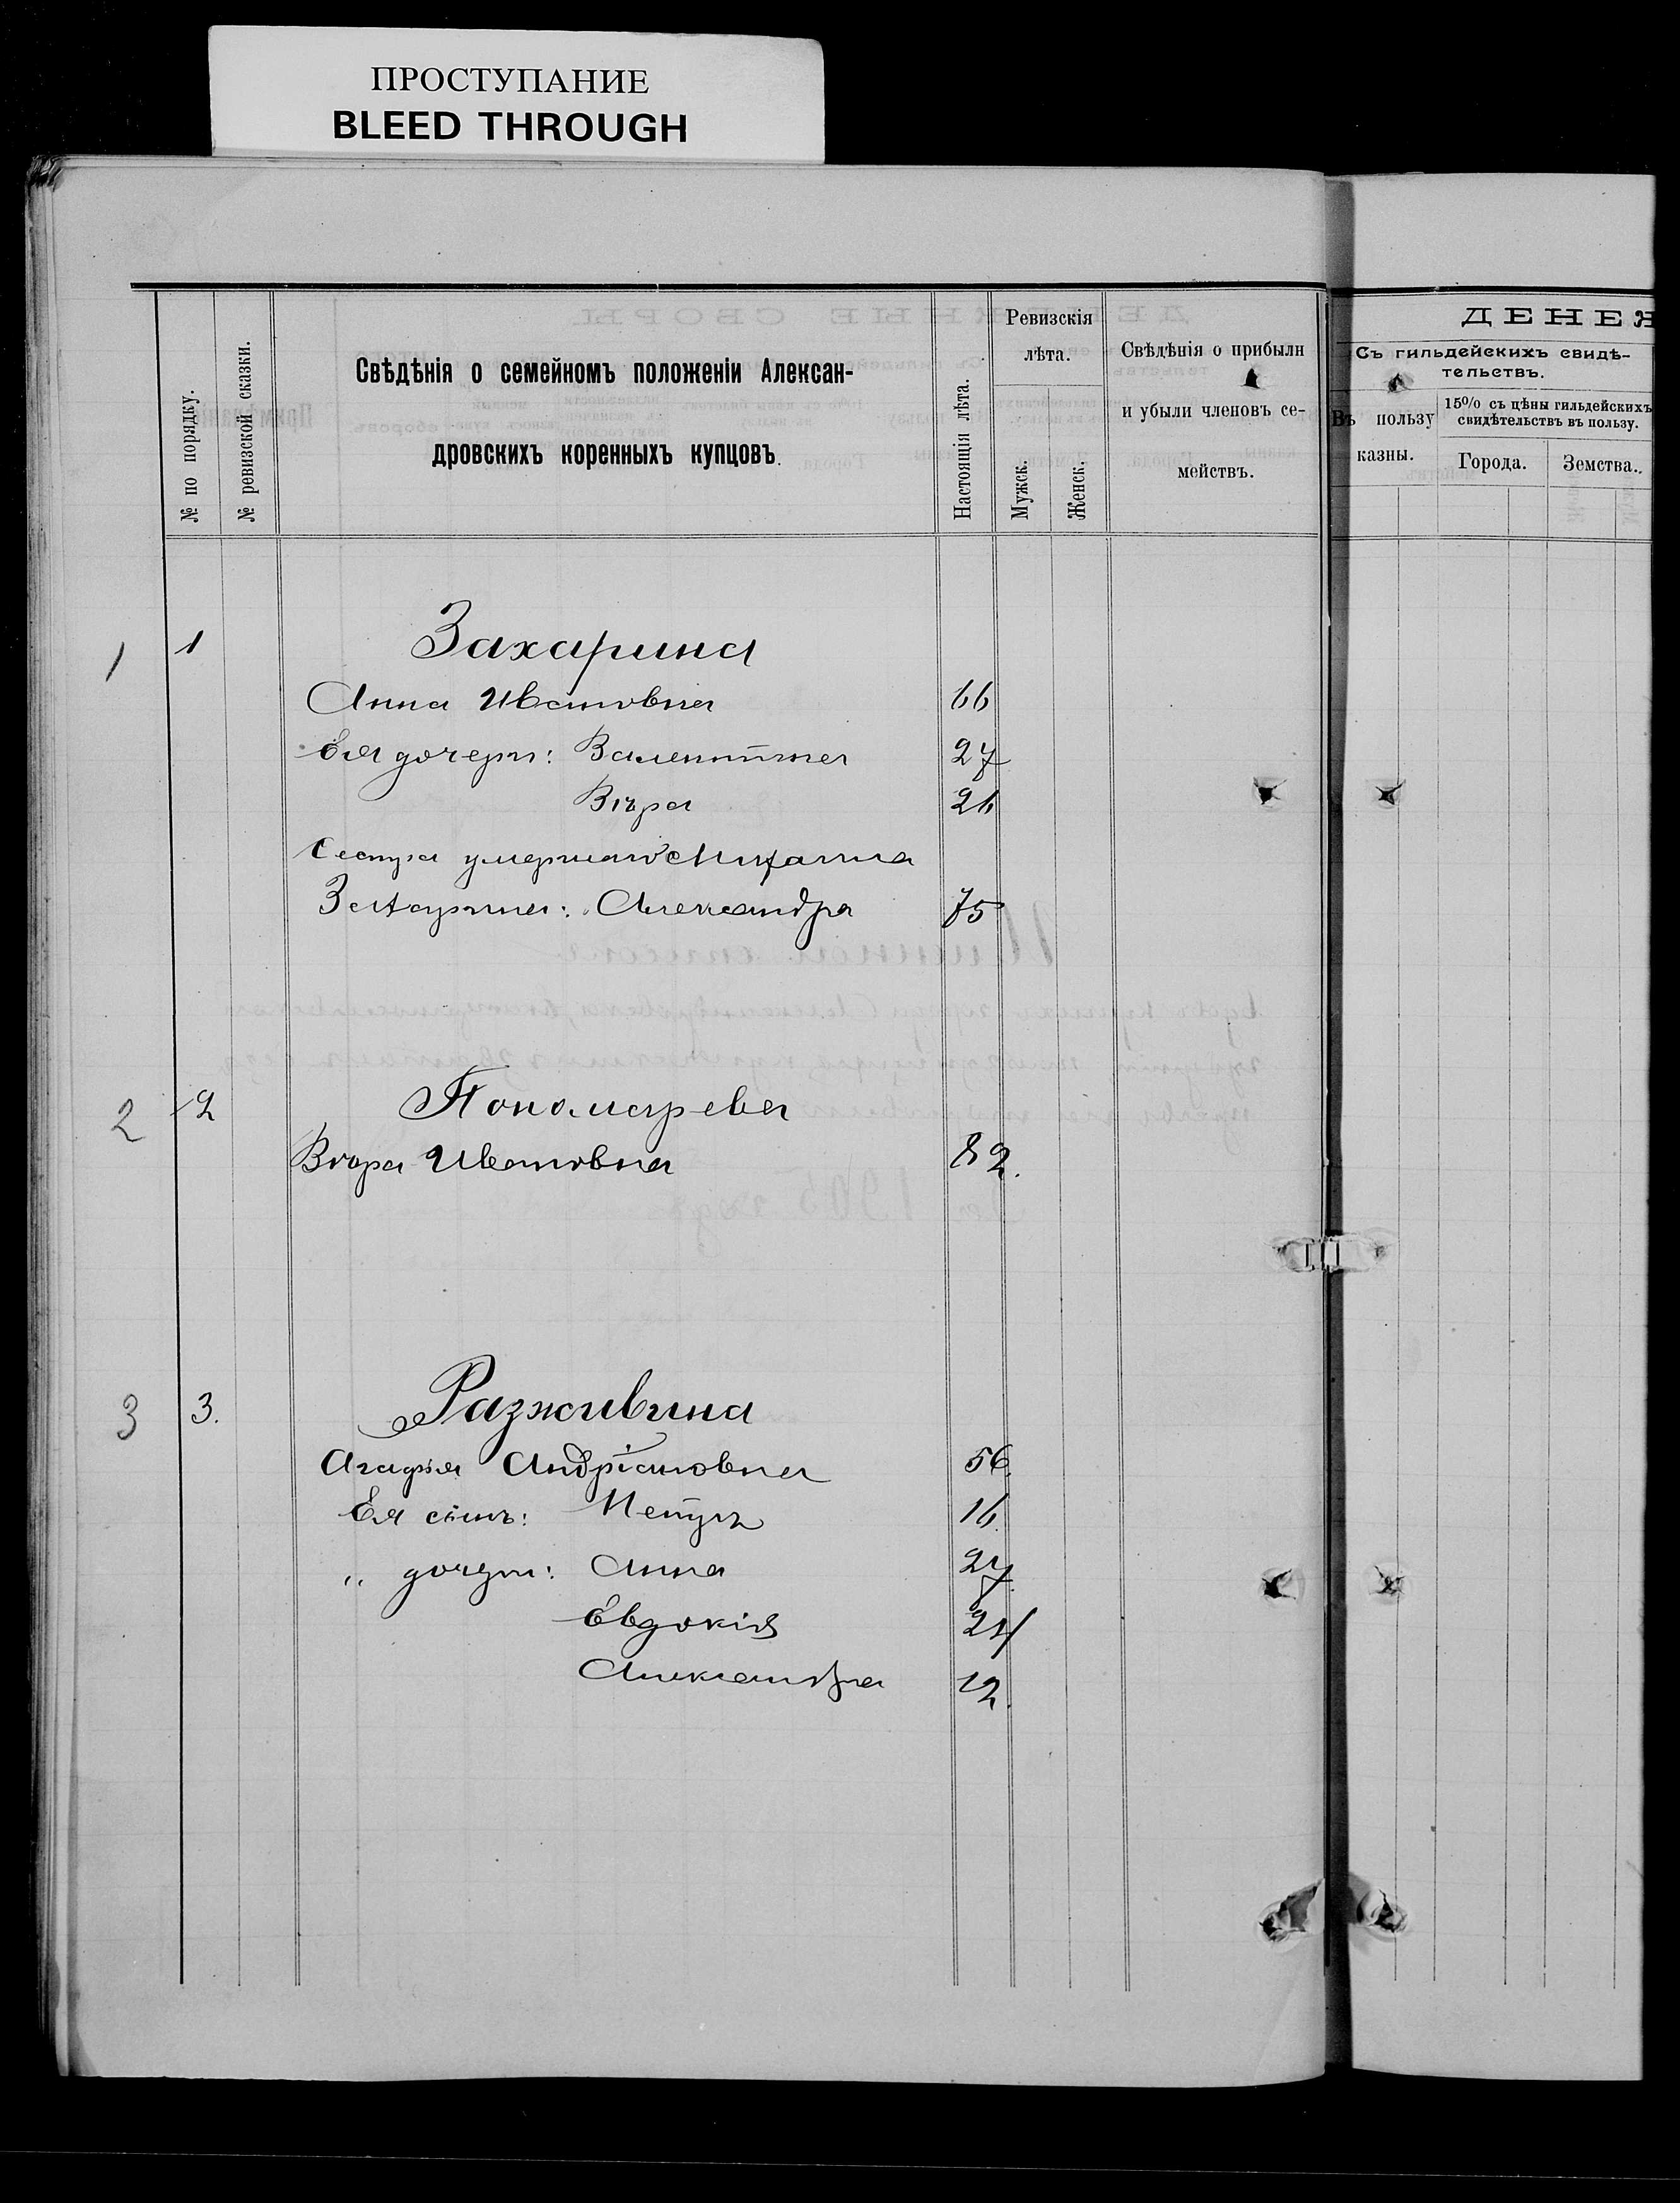 ПРОСТУПАНИЕ
BLEED THROUGH
№ по порядку.
№ ревизской сказки.
Свѣдѣнія о семейномъ положеніи Алексан-
дровскихъ коренныхъ купцовъ.
Настоящія лѣта.
Ревизскія
лѣта.
Мужск.
Женск.
Свѣдѣнія о прибыли
и убыли членовъ се-
мействъ.
ДЕНЕЖ
Съ гильдейскихъ свидѣ-
тельствъ.
Въ пользу
казны.
15% съ цѣны гильдейскихъ
свидѣтельствъ въ пользу.
Города.
Земства.
1 1 Захарина
Анна Ивановна 66
Ея дочери: Валентина 27
Вѣра 26
Сестра умершаго Михаила
Захарина: Александра 75
2 2 Пономарева
Вѣра Ивановна 82.
3 3. Разживина
Агафья Андріановна 56
Ея сынъ: Петръ 16
„ дочери: Анна 27
Евдокія 24
Александра 12